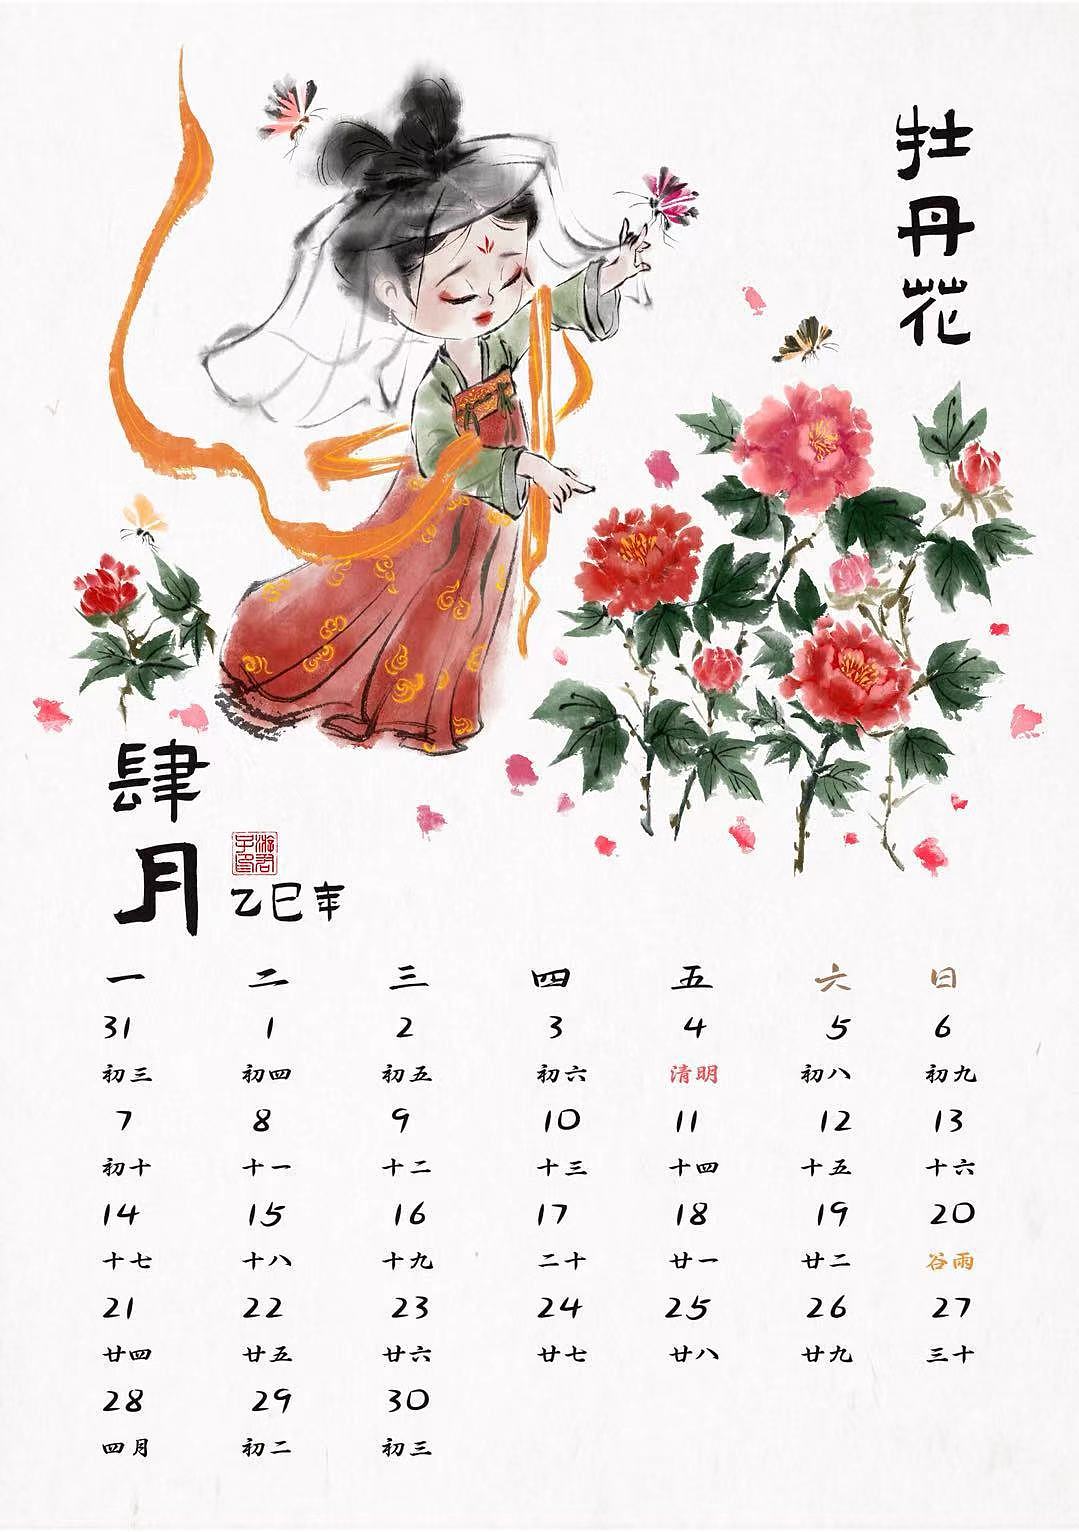 牡丹花
肆月
游君子印
乙巳年
一 二 三 四 五 六 日
31 1 2 3 4 5 6
初三 初四 初五 初六 清明 初八 初九
7 8 9 10 11 12 13
初十 十一 十二 十三 十四 十五 十六
14 15 16 17 18 19 20
十七 十八 十九 二十 廿一 廿二 谷雨
21 22 23 24 25 26 27
廿四 廿五 廿六 廿七 廿八 廿九 三十
28 29 30
四月 初二 初三